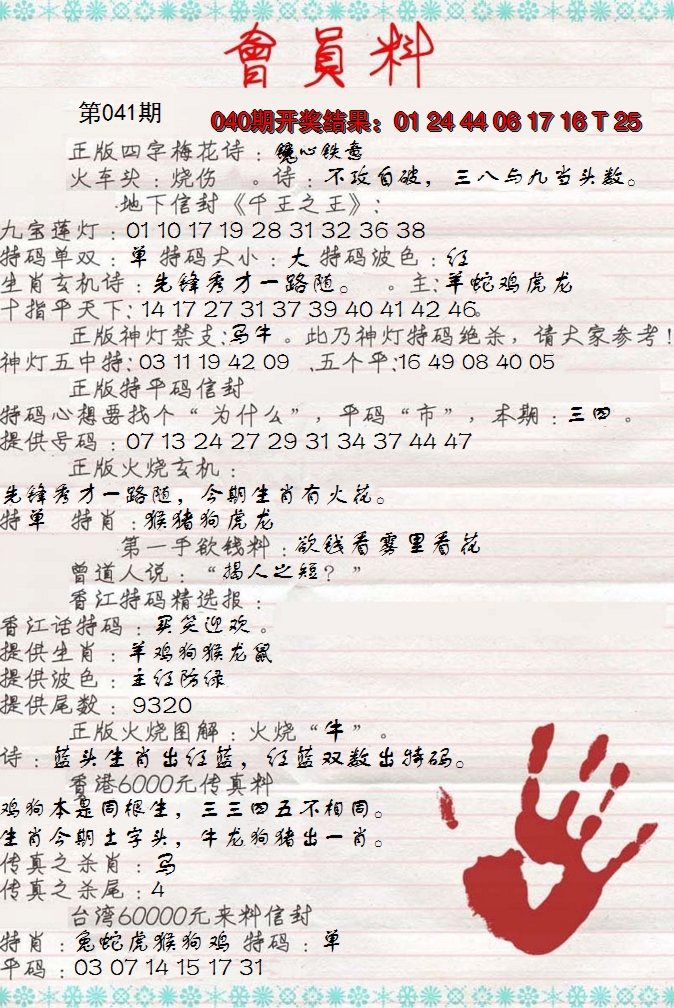 會員料
第041期
040期开奖结果：01 24 44 06 17 16 T 25
正版四字梅花诗：镜心铁意
火车头：烧伤 。诗：不攻自破，三八与九当头数。
地下信封《千王之王》：
九宝莲灯：01 10 17 19 28 31 32 36 38
特码单双：单 特码大小：大 特码波色：红
生肖玄机诗：先锋秀才一路随。 。主：羊蛇鸡虎龙
十指平天下：14 17 27 31 37 39 40 41 42 46。
正版神灯禁支：马牛。此乃神灯特码绝杀，请大家参考！
神灯五中特：03 11 19 42 09 .五个平：16 49 08 40 05
正版特平码信封
特码心想要找个“为什么”，平码“市”，本期：三四。
提供号码：07 13 24 27 29 31 34 37 44 47
正版火烧玄机：
先锋秀才一路随，今期生肖有火花。
特单 特肖：猴猪狗虎龙
第一手欲钱料：欲钱看雾里看花
曾道人说：“揭人之短？”
香江特码精选报：
香江话特码：买笑迎欢。
提供生肖：羊鸡狗猴龙鼠
提供波色：主红防绿
提供尾数：9320
正版火烧图解：火烧“牛”。
诗：蓝头生肖出红蓝，红蓝双数出特码。
香港6000元传真料
鸡狗本是同根生，三三四五不相同。
生肖今期土字头，牛龙狗猪出一肖。
传真之杀肖：马
传真之杀尾：4
台湾60000元来料信封
特肖：兔蛇虎猴狗鸡 特码：单
平码：03 07 14 15 17 31